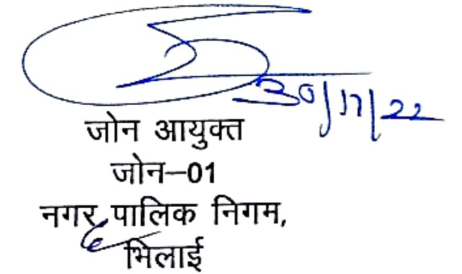 30/11/22
जोन आयुक्त
जोन–01
नगर पालिक निगम,
भिलाई